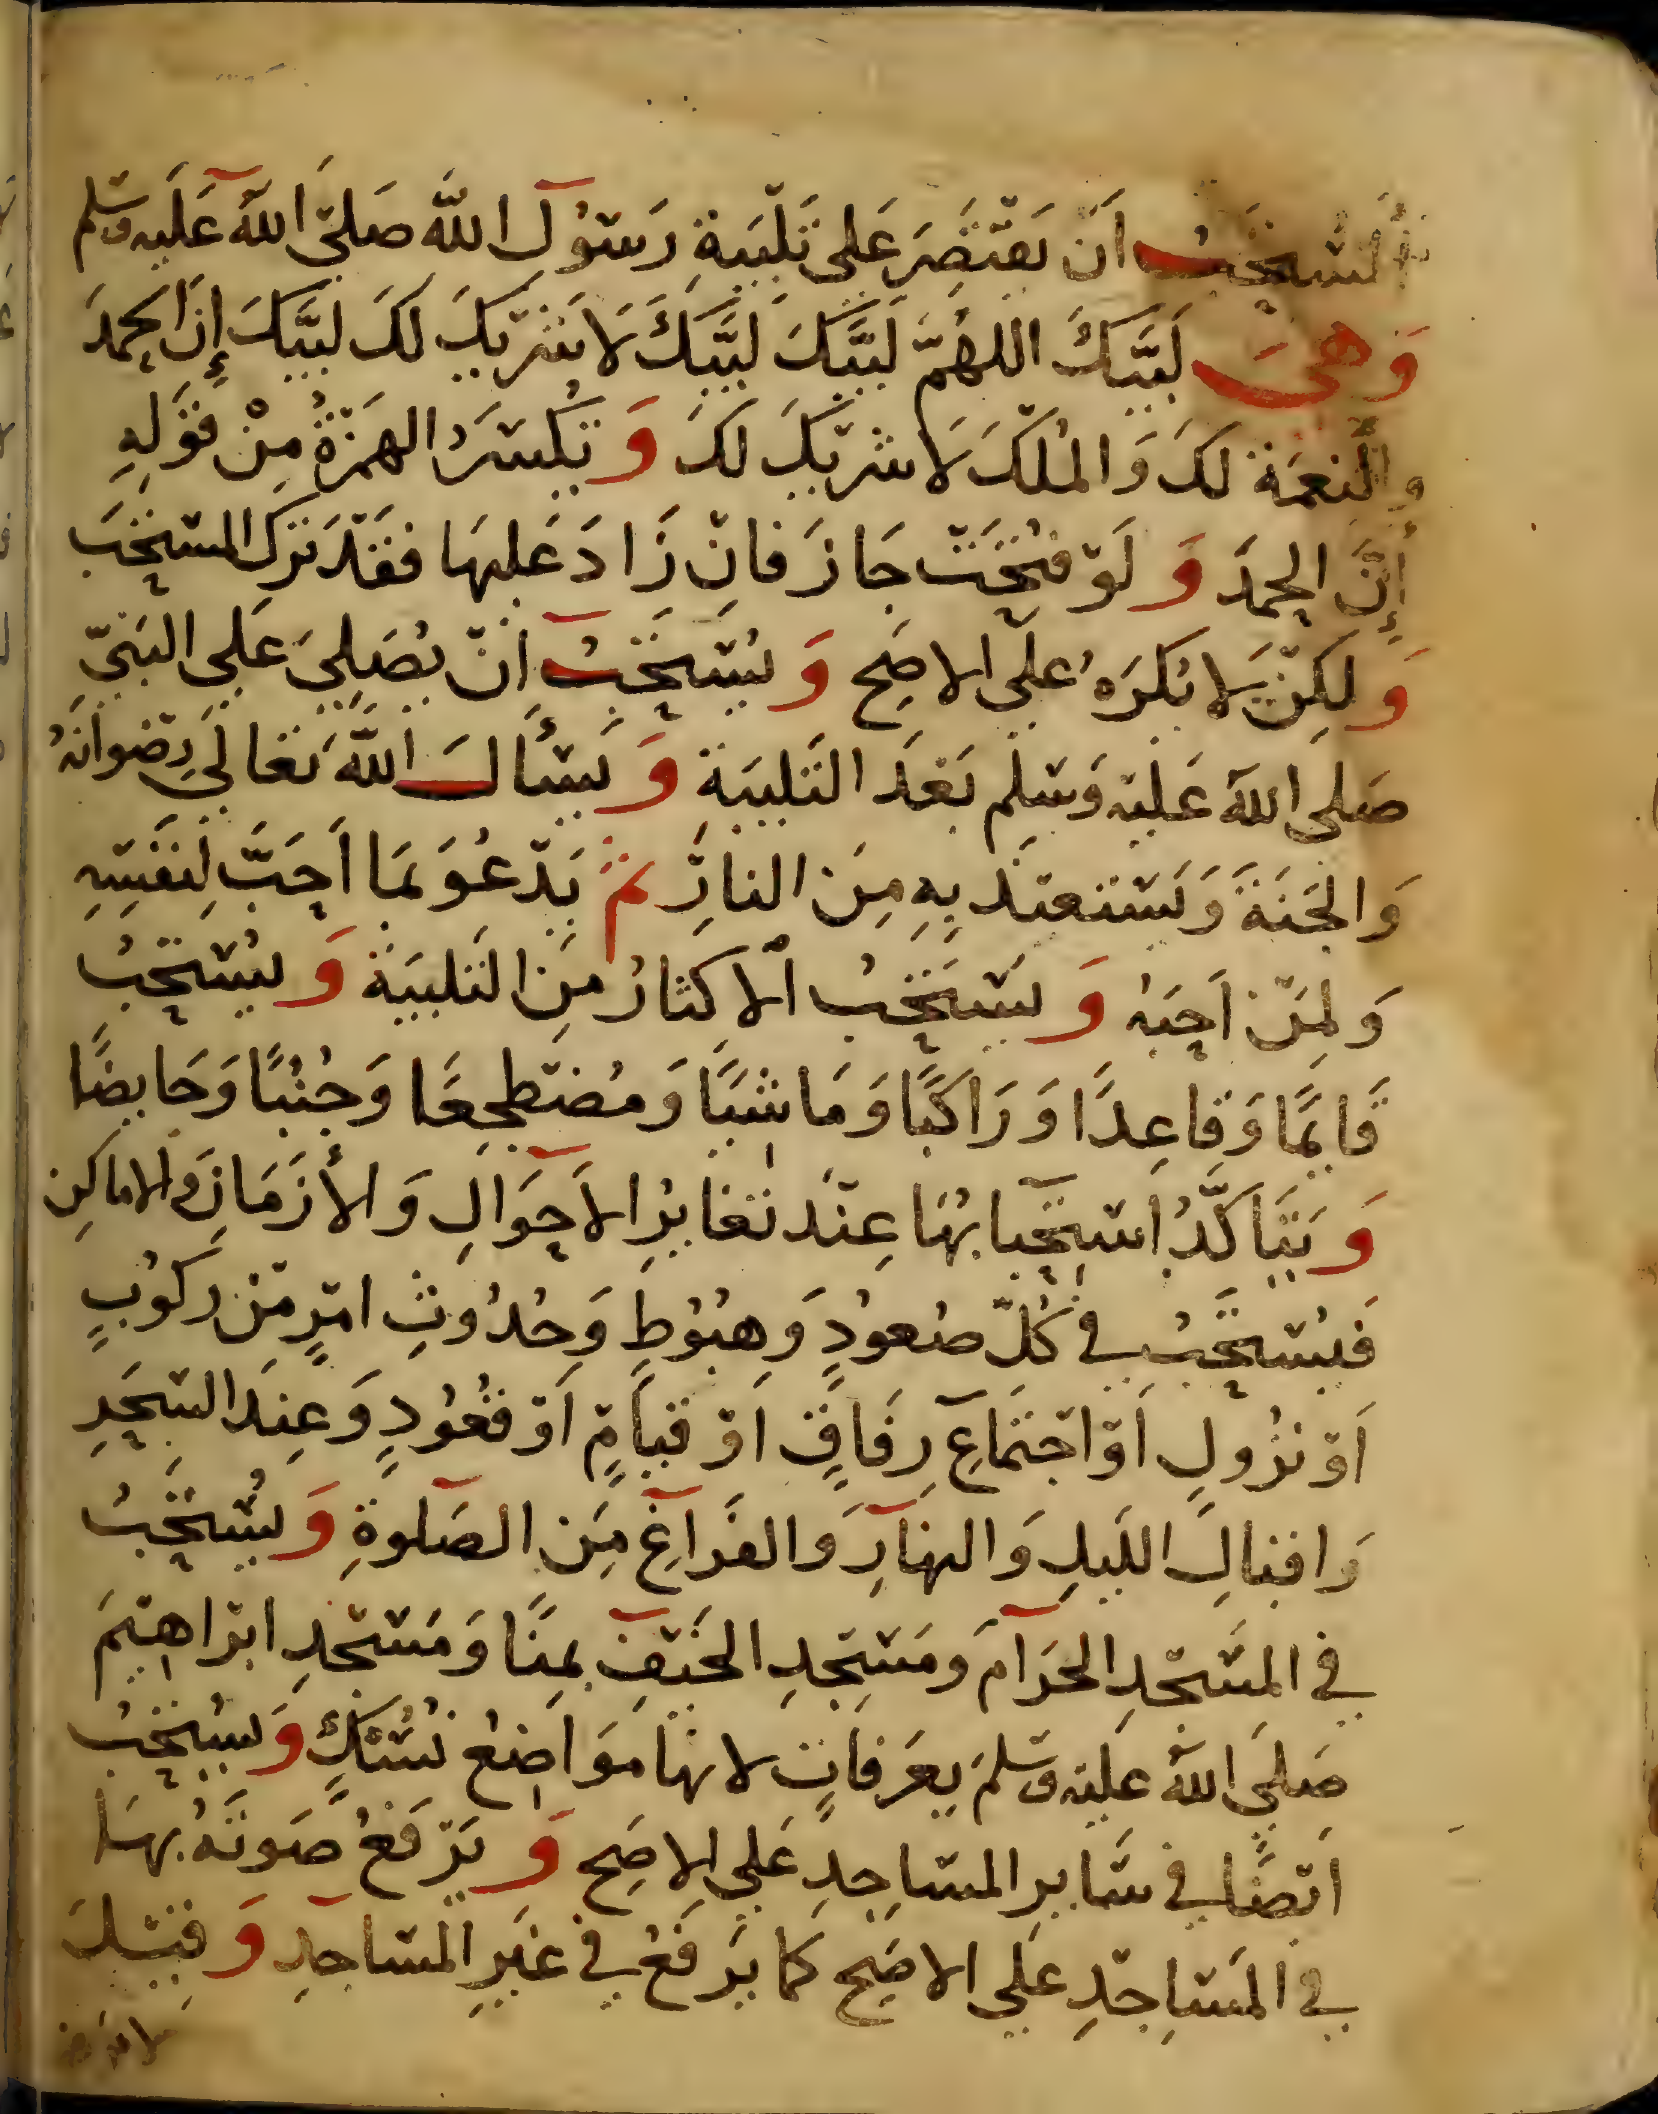 المستحب أن يقتصر على تلبية رسول الله صلى الله عليه وسلم
وهي لبيك اللهم لبيك لبيك لا شريك لك لبيك إن الحمد
والنعمة لك والملك لا شريك لك وتكسر الهمزة من قوله
إن الحمد ولو فتحت جاز فان زاد عليها فقد ترك المستحب
ولكن لا يكره على الاصح ويستحب أن يصلي على النبي
صلى الله عليه وسلم بعد التلبية ويسأل الله تعالى رضوانه
والجنة ويستعيذ به من النار ثم يدعو بما أحب لنفسه
ولمن أحبه ويستحب الاكثار من التلبية ويستحب
قايما وقاعدا وراكبا وماشيا ومضطجعا وجنبا وحايضا
ويتاكد استحبابها عند تغاير الاحوال والأزمان والاماكن
فيستحب في كل صعود وهبوط وحدوث امر من ركوب
أو نزول أو اجتماع رفاق أو قيام أو قعود وعند السحر
واقبال الليل والنهار والفراغ من الصلوة ويستحب
في المسجد الحرام ومسجد الخيف بمنا ومسجد ابراهيم
صلى الله عليه وسلم بعرفات لانها مواضع نسك ويستحب
أيضا في ساير المساجد على الاصح ويرفع صوته بها
في المساجد على الاصح كما يرفع في غير المساجد وقيل